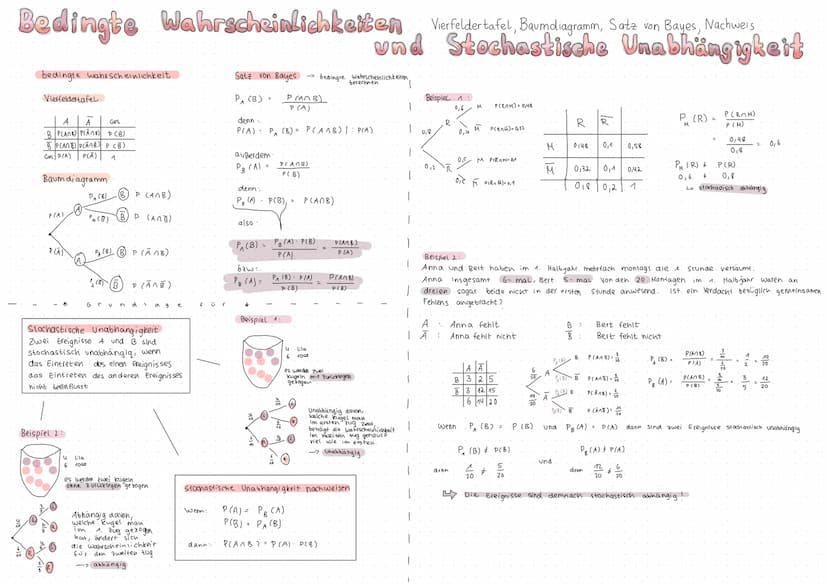 Bedingte Wahrscheinlichkeiten
Vierfeldertafel, Baumdiagramm, Satz von Bayes, Nachweis
und Stochastische Unabhängigkeit
bedingte Wahrscheinlichkeit
Vierfeldertafel
A Ā Ges
B P(A∩B) P(Ā∩B) P(B)
Ges P(A) P(Ā) 1
Baumdiagramm
P(A)
P(Ā)
A
B P(A∩B)
B̄ P(A∩B̄)
B P(Ā∩B)
B̄ P(Ā∩B̄)
Satz von Bayes → bedingte Wahrscheinlichkeiten
P_A(B) = P(A∩B) / P(A)
denn:
P(A) · P_A(B) = P(A∩B) | : P(A)
außerdem:
P_B(A) = P(A∩B) / P(B)
denn:
P_B(A) · P(B) = P(A∩B)
also:
P_A(B) = P_B(A) · P(B) / P(A) = P(A∩B) / P(A)
bzw:
P_B(A) = P_A(B) · P(A) / P(B) = P(A∩B) / P(B)
Grundlage für
Stochastische Unabhängigkeit
Zwei Ereignisse A und B sind
stochastisch unabhängig, wenn
das Eintreten des einen Ereignisses
das Eintreten des anderen Ereignisses
nicht beeinflusst
Beispiel 1:
4 lila
6 rosa
es werden zwei
Kugeln mit zurücklegen
gezogen
Unabhängig davon,
welche Kugel man
im ersten Zug
die Wahrscheinlichkeit
im zweiten Zug genauso
viel wie im ersten
→ unabhängig
Beispiel 2:
4 lila
6 rosa
es werden zwei Kugeln
ohne zurücklegen gezogen
Abhängig davon,
welche Kugel man
im 1. Zug gezogen
hat, ändert sich
die Wahrscheinlichkeit
für den zweiten Zug
→ abhängig
Stochastische Unabhängigkeit nachweisen
Wenn: P(A) = P_B(A)
P(B) = P_A(B)
dann: P(A∩B) = P(A) · P(B)
Beispiel 1:
0,8
0,2
0,6 M P(R∩M)=0,48
0,4 M̄
0,5 M
R R̄
M 0,48 0,1 0,58
M̄ 0,32 0,1 0,42
0,8 0,2 1
P_M(R) = P(R∩M) / P(M)
= 0,48 / 0,8 = 0,6
P_M(R) ≠ P(R)
0,6 ≠ 0,8
↳ stochastisch abhängig
Beispiel 2:
Anna und Bert haben im 1. Halbjahr mehrfach montags die 1 Stunde versäumt.
Anna insgesamt 6-mal, Bert 5-mal. Von den 20 Montagen im 1. Halbjahr waren an
dreien sogar beide nicht in der ersten Stunde anwesend. Ist ein Verdacht bezüglich gemeinsamen
Fehlens angebracht?
A : Anna fehlt B : Bert fehlt
Ā : Anna fehlt nicht B̄ : Bert fehlt nicht
A Ā
B 3 2 5
B̄ 3 12 15
6 14 20
P_A(B) = P(A∩B) / P(A)
P_B(A) = P(A∩B) / P(B)
Wenn P_A(B) = P(B) und P_B(A) = P(A) dann sind zwei Ereignisse stochastisch unabhängig
P_A(B) ≠ P(B) und P_B(A) ≠ P(A)
denn
denn 12/20 ≠ 6/20
⇒ Die Ereignisse sind demnach stochastisch abhängig!